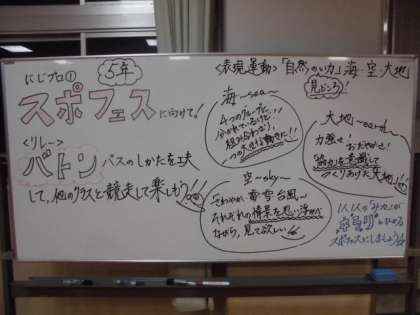 にじプロ①
5年
スポフェスに向けて!
<リレー>
バトンパスのしかたを工夫
して、他のクラスと競走して楽しもう!!
<表現運動>「自然の力」海・空・大地
見どころ!
海 ~sea~
4つのグループに
分かれているけど…
組み合わさり、
1つの大きな動きに!!
空~sky~
さわやか、雷雲、台風~
それぞれの情景を思い浮かべ
ながら、見て欲しい
大地~earth~
力強さ! おだやかさ!
協力を意識して
つくりあげた大地!!
1人1人の
スポフェスにしましょう